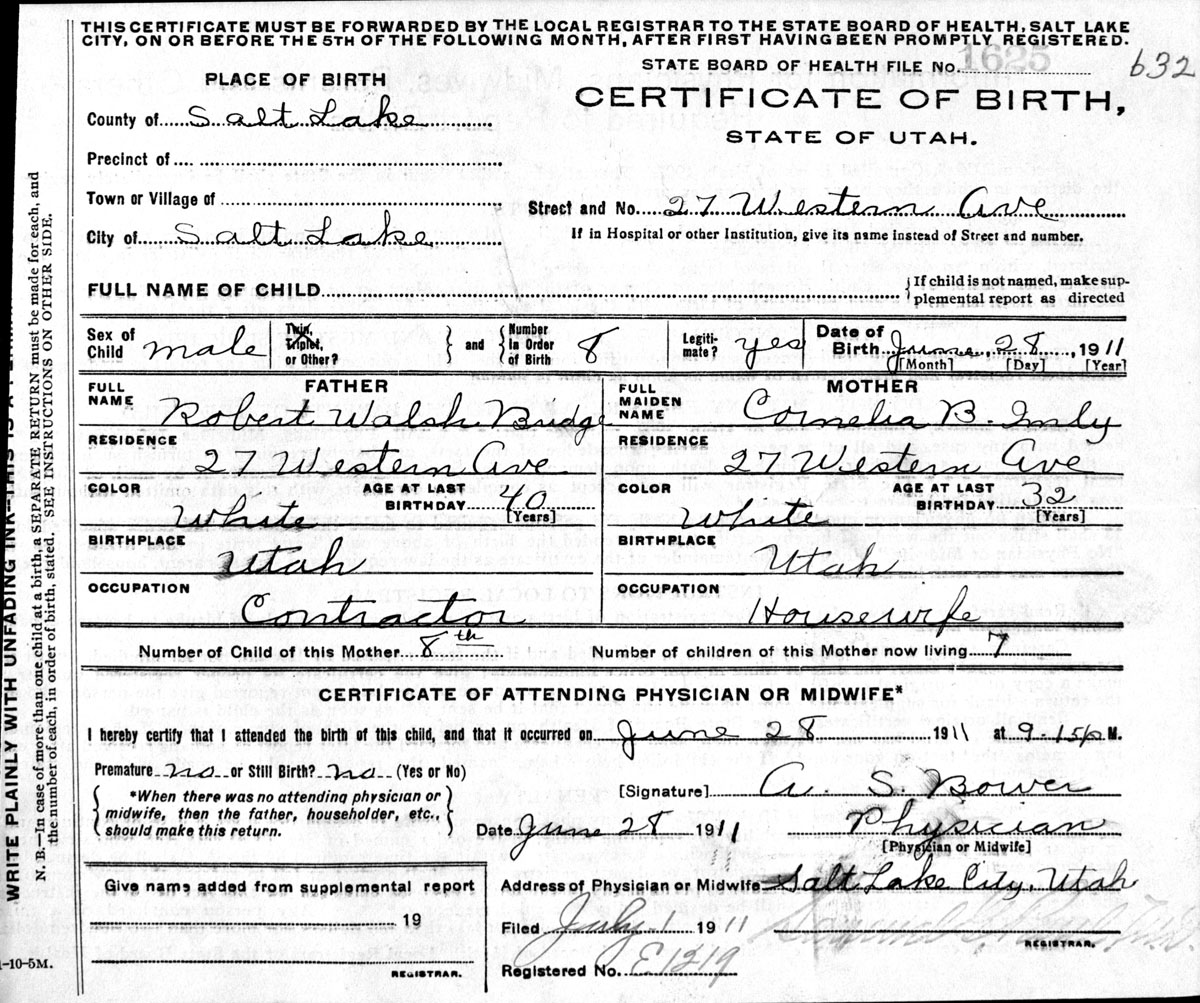 THIS CERTIFICATE MUST BE FORWARDED BY THE LOCAL REGISTRAR TO THE STATE BOARD OF HEALTH, SALT LAKE
CITY, ON OR BEFORE THE 5TH OF THE FOLLOWING MONTH, AFTER FIRST HAVING BEEN PROMPTLY REGISTERED.
STATE BOARD OF HEALTH FILE No. 1625 632
PLACE OF BIRTH
CERTIFICATE OF BIRTH,
STATE OF UTAH.
County of Salt Lake
Precinct of
Town or Village of
Street and No. 27 Western Ave
City of Salt Lake
If in Hospital or other Institution, give its name instead of Street and number.
FULL NAME OF CHILD
If child is not named, make sup-
plemental report as directed
Sex of Child male
Twin, Triplet, or Other?
and Number in Order of Birth 8
Legiti-mate? yes
Date of Birth June 28, 1911
[Month] [Day] [Year]
FATHER
FULL NAME Robert Walsh Bridge
MOTHER
FULL MAIDEN NAME Cornelia B. Imly
RESIDENCE 27 Western Ave
RESIDENCE 27 Western Ave
COLOR White AGE AT LAST BIRTHDAY 40 [Years]
COLOR White AGE AT LAST BIRTHDAY 32 [Years]
BIRTHPLACE Utah
BIRTHPLACE Utah
OCCUPATION Contractor
OCCUPATION Housewife
Number of Child of this Mother 8th Number of children of this Mother now living 7
CERTIFICATE OF ATTENDING PHYSICIAN OR MIDWIFE*
I hereby certify that I attended the birth of this child, and that it occurred on June 28 1911 at 9-15p M.
Premature no or Still Birth? no (Yes or No)
*When there was no attending physician or
midwife, then the father, householder, etc.,
should make this return.
[Signature] A. S. Bower
Date June 28 1911 Physician
[Physician or Midwife]
Give name added from supplemental report
19
REGISTRAR.
Address of Physician or Midwife Salt Lake City, Utah
Filed July 1 1911
REGISTRAR.
Registered No. E1219
WRITE PLAINLY WITH UNFADING INK—THIS IS A
N. B.—In case of more than one child at a birth, a SEPARATE RETURN must be made for each, and
the number of each, in order of birth, stated. SEE INSTRUCTIONS ON OTHER SIDE.
-10-5M.